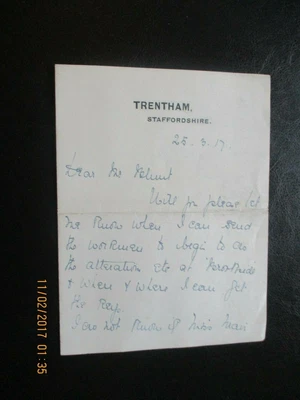 TRENTHAM,
STAFFORDSHIRE.
25. 3. 17
Dear Mr
Will you please let
me know when I can send
the workmen to begin to do
the alteration etc at
& when & where I can get
the key.
I do not know if Miss
11/02/2017 01:35